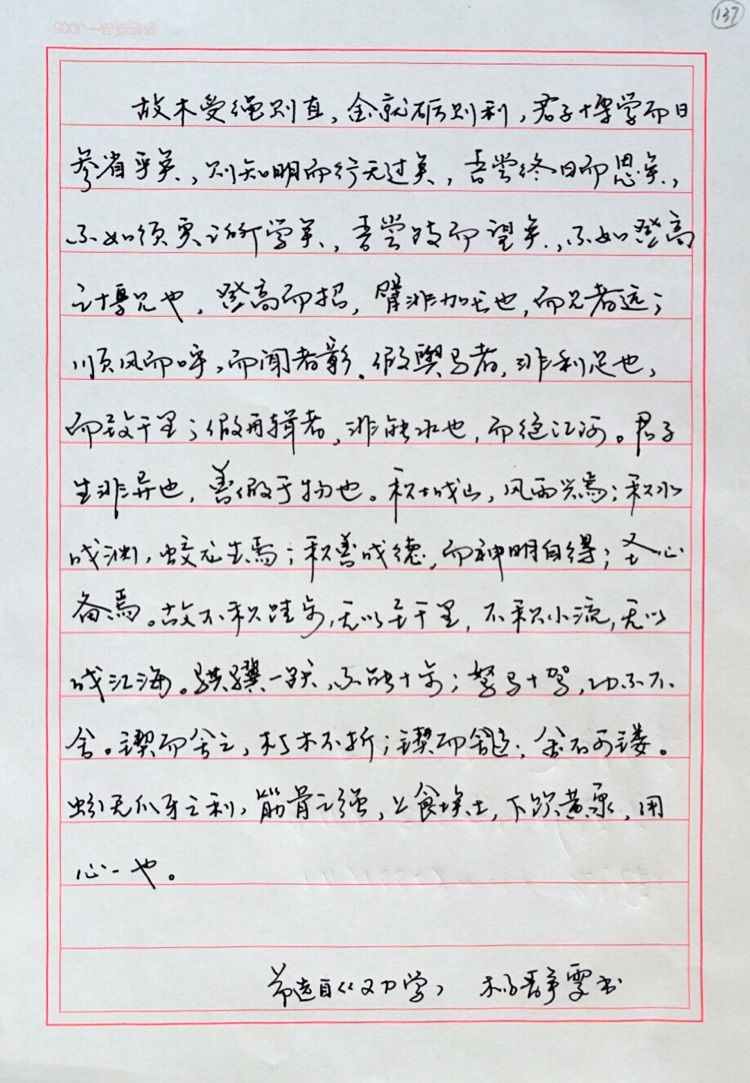 137
故木受绳则直，金就砺则利，君子博学而日
参省乎矣，则知明而行无过矣，吾尝终日而思矣，
不如须臾之所学矣，吾尝跂而望矣，不如登高
之博见也，登高而招，臂非加长也，而见者远；
顺风而呼，而闻者彰．假舆马者，非利足也，
而致千里；假舟楫者，非能水也，而绝江河。君子
生非异也，善假于物也。积土成山，风雨兴焉；积水
成渊，蛟龙生焉；积善成德，而神明自得；圣心
备焉。故不积跬步，无以至千里，不积小流，无以
成江海。骐骥一跃，不能十步；驽马十驾，功不不
舍。锲而舍之，朽木不折；锲而舍；金石可镂。
蚓无爪牙之利，筋骨之强，上食埃土，下饮黄泉，用
心一也。
节选自《劝学》 杨静雯书